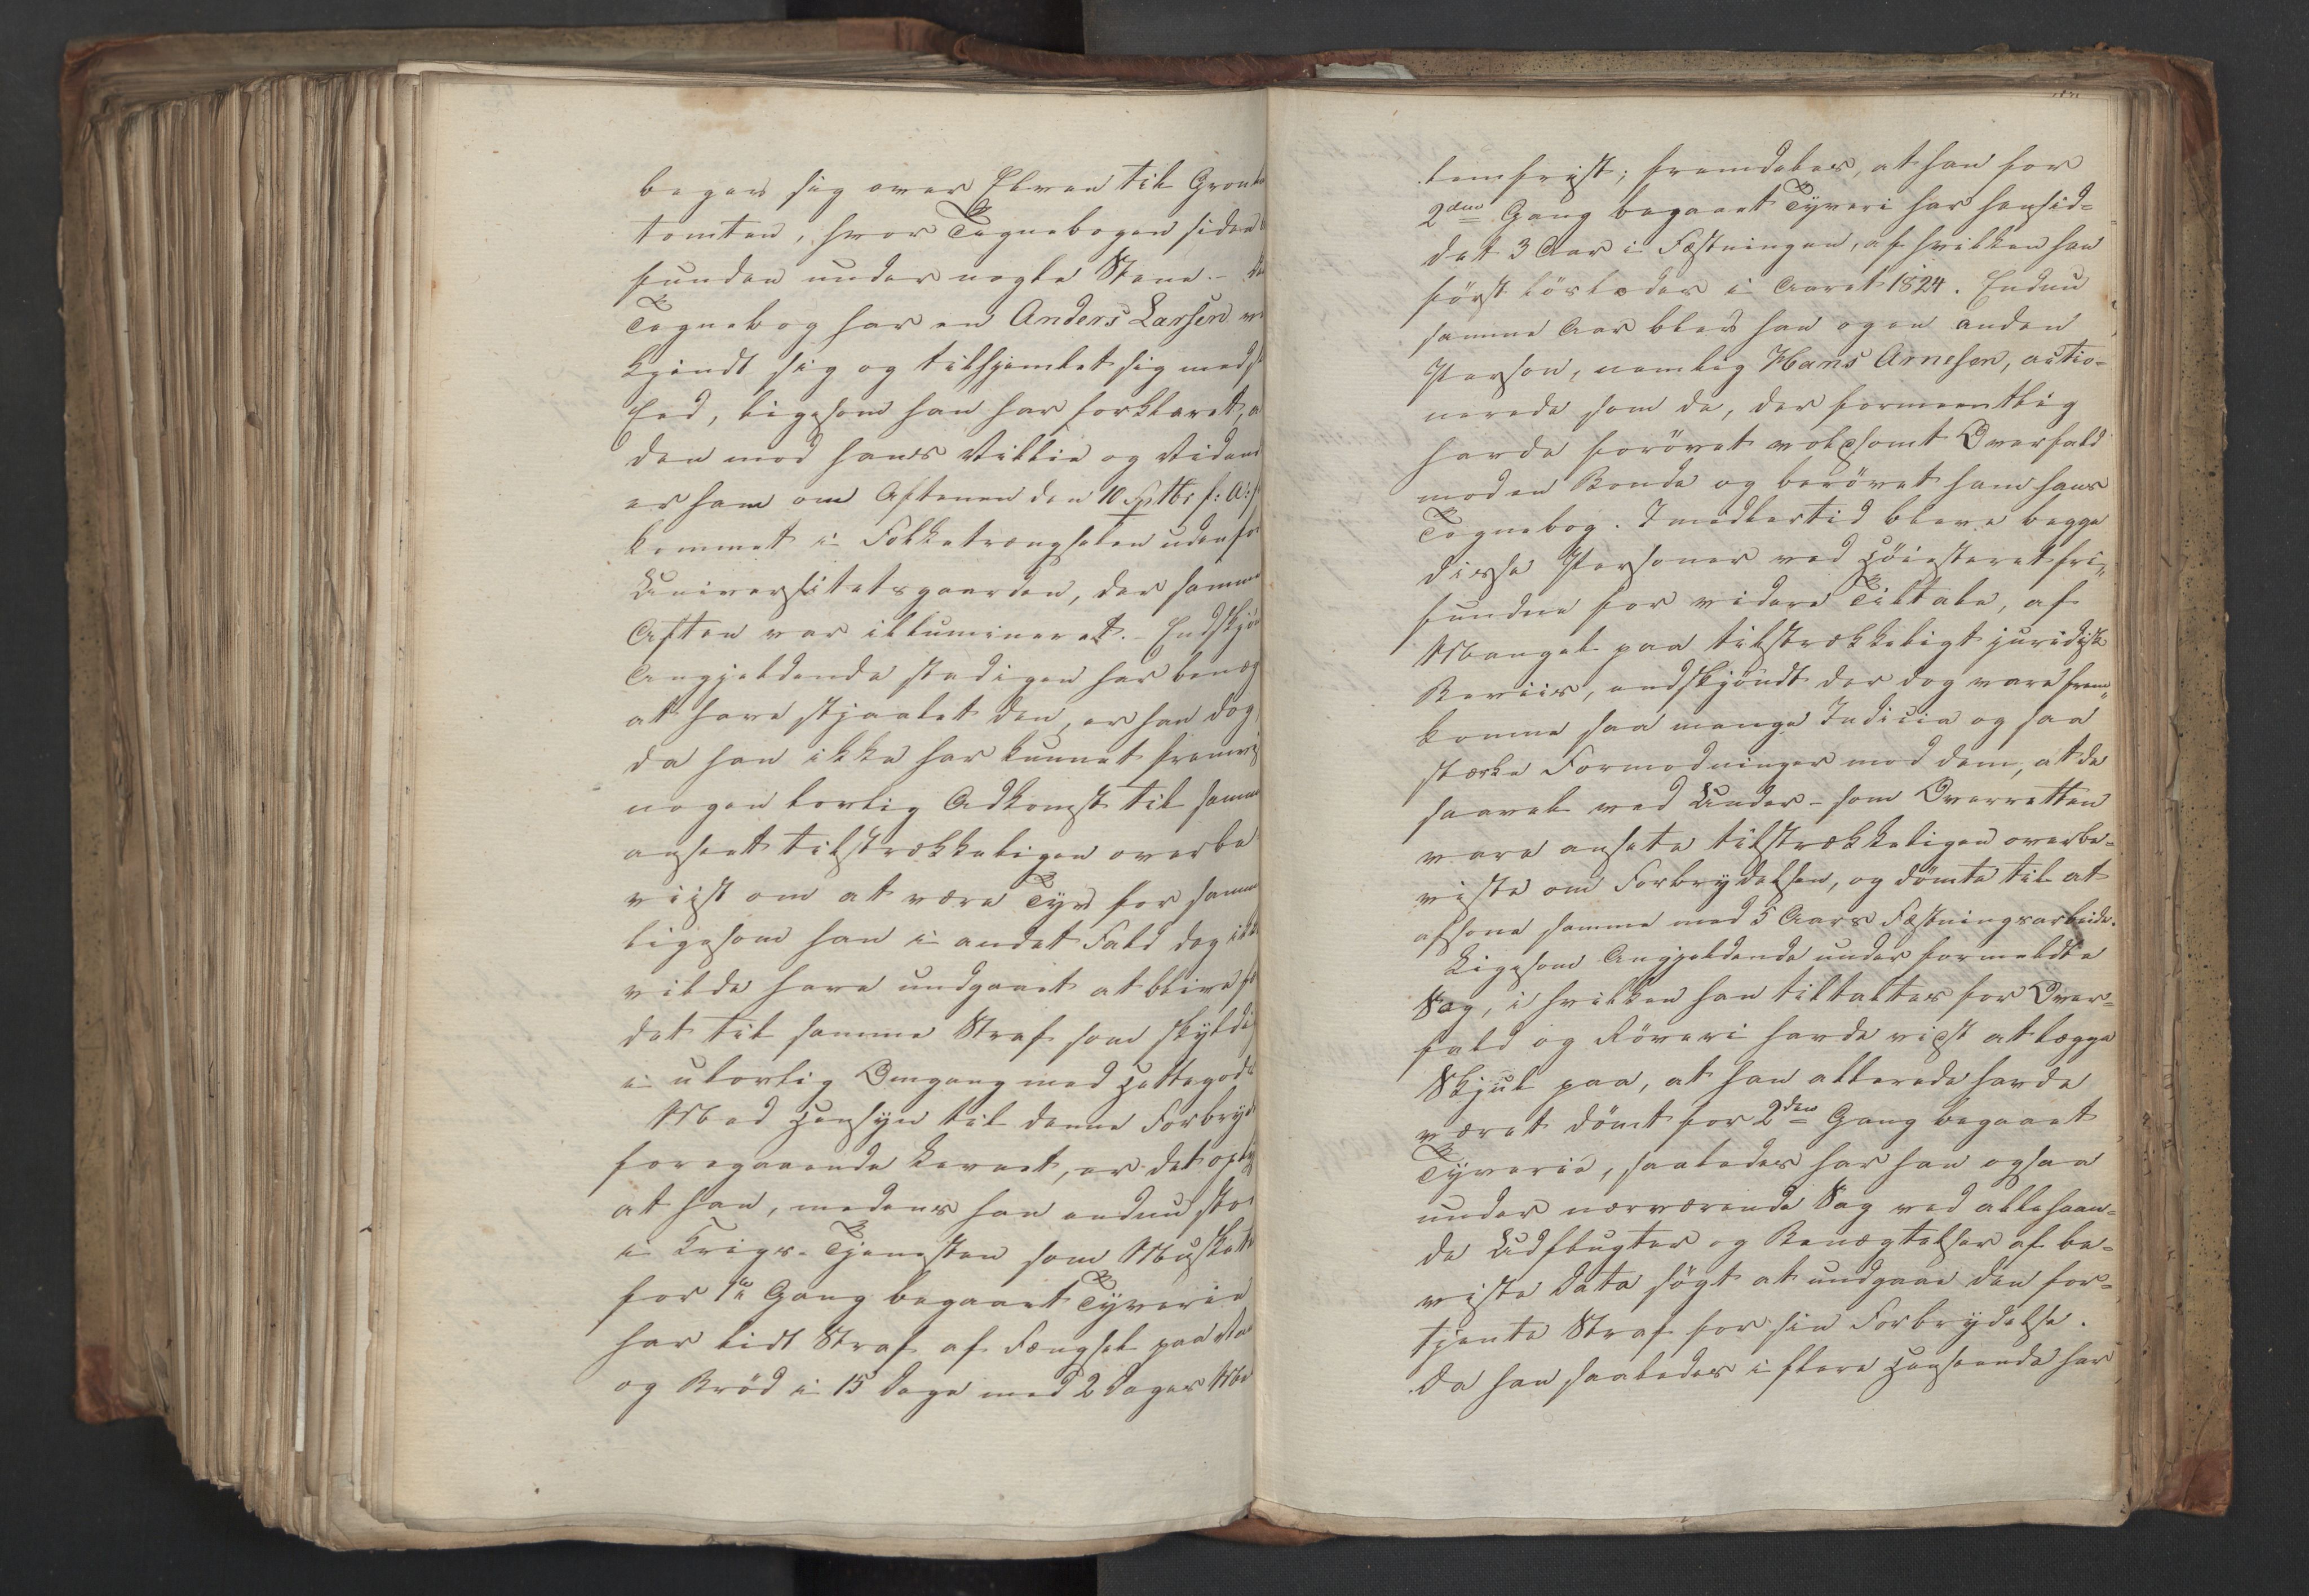 begav sig over Elven til Grønd
tomten, hvor Tegnebogen siden
funden under nogle Stene. – De
Tegnebog har en Anders Larsen ve
kjendt sig og tilhjemlet sig med s
Eed, ligesom han har forklaret, a
den mod hans Villie og Vidend
er ham om Aftenen den 10 Septbr f: A: f
kommet i Folketrængselen udenfor
Universitetsgaarden, der samme
Aften var illumineret. – Endskjøn
Angjeldende stedigen har benæg
at have stjaalet den, er han dog,
da han ikke har kunnet fremvis
nogen lovlig Adkomst til samme
anseet tilstrækkeligen overbe
viist om at være Tyv for samme
ligesom han i andet Fald dog ikke
vilde have undgaaet at blive fæ
det til samme Straf som skyldig
i ulovlig Omgang med Kostegods
Med Hensyn til denne Forbryd
foregaaende Levnet, er det oply
at han, medens han endnu sto
i Krigs-Tjenesten som Muskete
for 1te Gang begaaet Tyverie
har lidt Straf af Fængsel paa Van
og Brød i 15 Dage med 2 Dages Me
lemfrist; fremdeles, at han for
2den Gang begaaet Tyveri har hensid-
det 3 Aar i Fæstningen, af hvilken han
først løslodes i Aaret 1824. Endnu
samme Aar blev han og en anden
Person, nemlig Hans Arnesen, actio-
nerede som de, der formeentlig
havde forøvet voldsomt Overfald
mod en Bonde og berøvet ham hans
Tegnebog. Imidlertid bleve begge
disse Personer ved Høiesteret fri-
fundne for videre Tiltale, af
Mangel paa tilstrækkeligt juridisk
Beviis, endskjøndt der dog vare frem-
komne saa mange Indicia og saa
stærke Formodninger mod dem, at de
saavel ved Under- som Overretten
vare ansete tilstrækkeligen overbe-
viste om Forbrydelsen, og dømte til at
afsone samme med 5 Aars Fæstningsarbeide.
Ligesom Angjeldende under formeldte
Sag, i hvilken han tiltaltes for Over-
fald og Røveri havde vidst at lægge
Skjul paa, at han allerede havde
været dømt for 2den Gang begaaet
Tyverie, saaledes har han ogsaa
under nærværende Sag ved allehaan-
de Udflugter og Benægtelser af be-
viste Data søgt at undgaae den for-
tjente Straf for sin Forbrydelse.
Da han saaledes i flere Henseende har